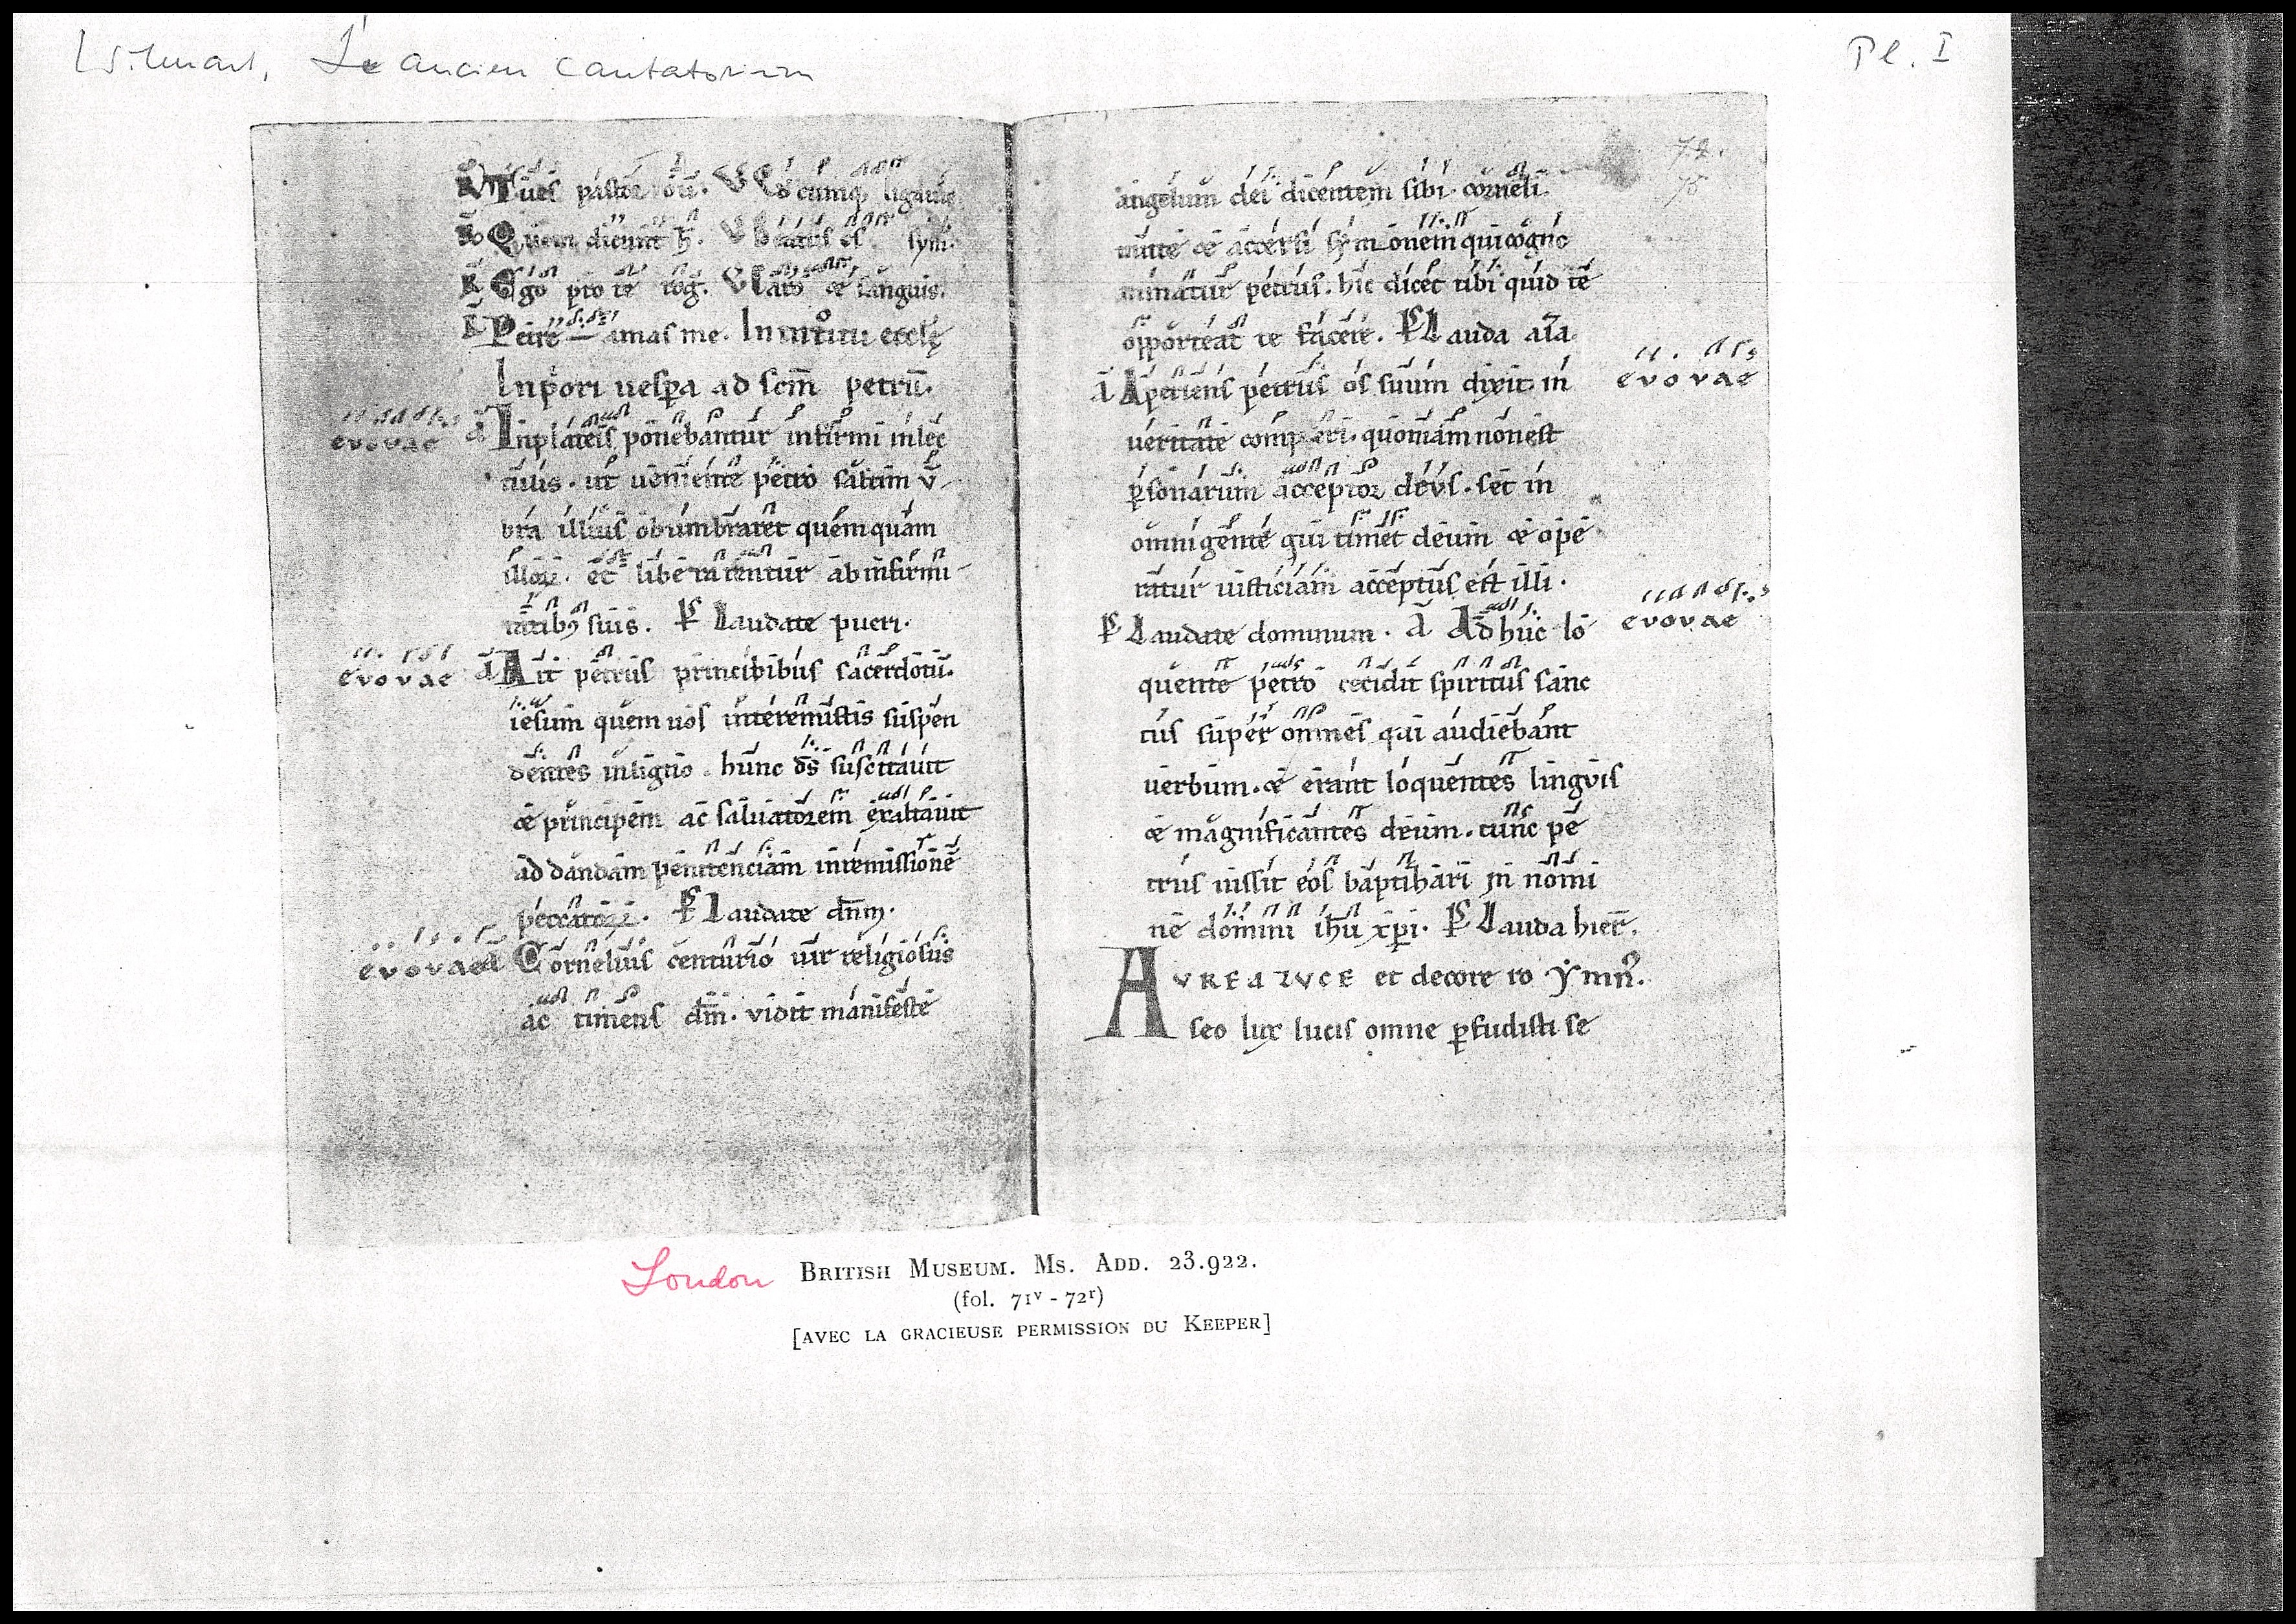 Wilmart, L'ancien Cantatorium
Pl. I
Tu es pastor oũ. V Quodcũq, ligaũis
Quem dicunt h̃. V beatus es sym̃.
Ego pro te rog̃. V Caro & sanguis.
Petre amas me. In introitu ecclę
In pori uesꝑa ad scm̃ petrũ.
evovae ã In plateis ponebantur infirmi in lec
tulis. ut ueniente petro saltim ṽ
bra illius obumbraret quemquam
illoꝝ. et liberarentur ab infirmi
tatibꝫ suis. P̃ Laudate pueri.
evovae ã Ait petrus principibus sacerdotũ.
iesum quem uos interemistis suspen
dentes in ligno. hunc d̃s suscitauit
& principem ac saluatorem exaltauit
ad dandam penitenciam in remissionẽ
peccatoꝝ. P̃ Laudate dñm.
evovae ã Cornelius centurio uir religiosus
ac timens dm̃. vidit manifeste
72.
75
angelum dei dicentem sibi. corneli.
mitte & accersi symonem qui cogno
minatur petrus. hic dicet tibi quid te
opporteat te facere. P̃ Lauda aĩa.
ã Aperiens petrus os suum dixit. in evovae
ueritate comperi. quoniam non est
ꝑsonarum acceptor devs. set in
omni gente qui timet deum & ope
ratur iusticiam acceptus est illi.
P̃ Laudate dominum. ã Ad huc lo evovae
quente petro cecidit spiritus sanc
tus super omnes qui audiebant
uerbum. & erant loquentes lingvis
& magnificantes deum. tunc pe
trus iussit eos baptihari in nomi
ne domini ihũ xp̃i. P̃ Lauda hier̃.
AVREA LVCE et decore ro ymñ.
seo lux lucis omne ꝑfudisti se
London BRITISH MUSEUM. MS. ADD. 23.922.
(fol. 71v - 72r)
[AVEC LA GRACIEUSE PERMISSION DU KEEPER]